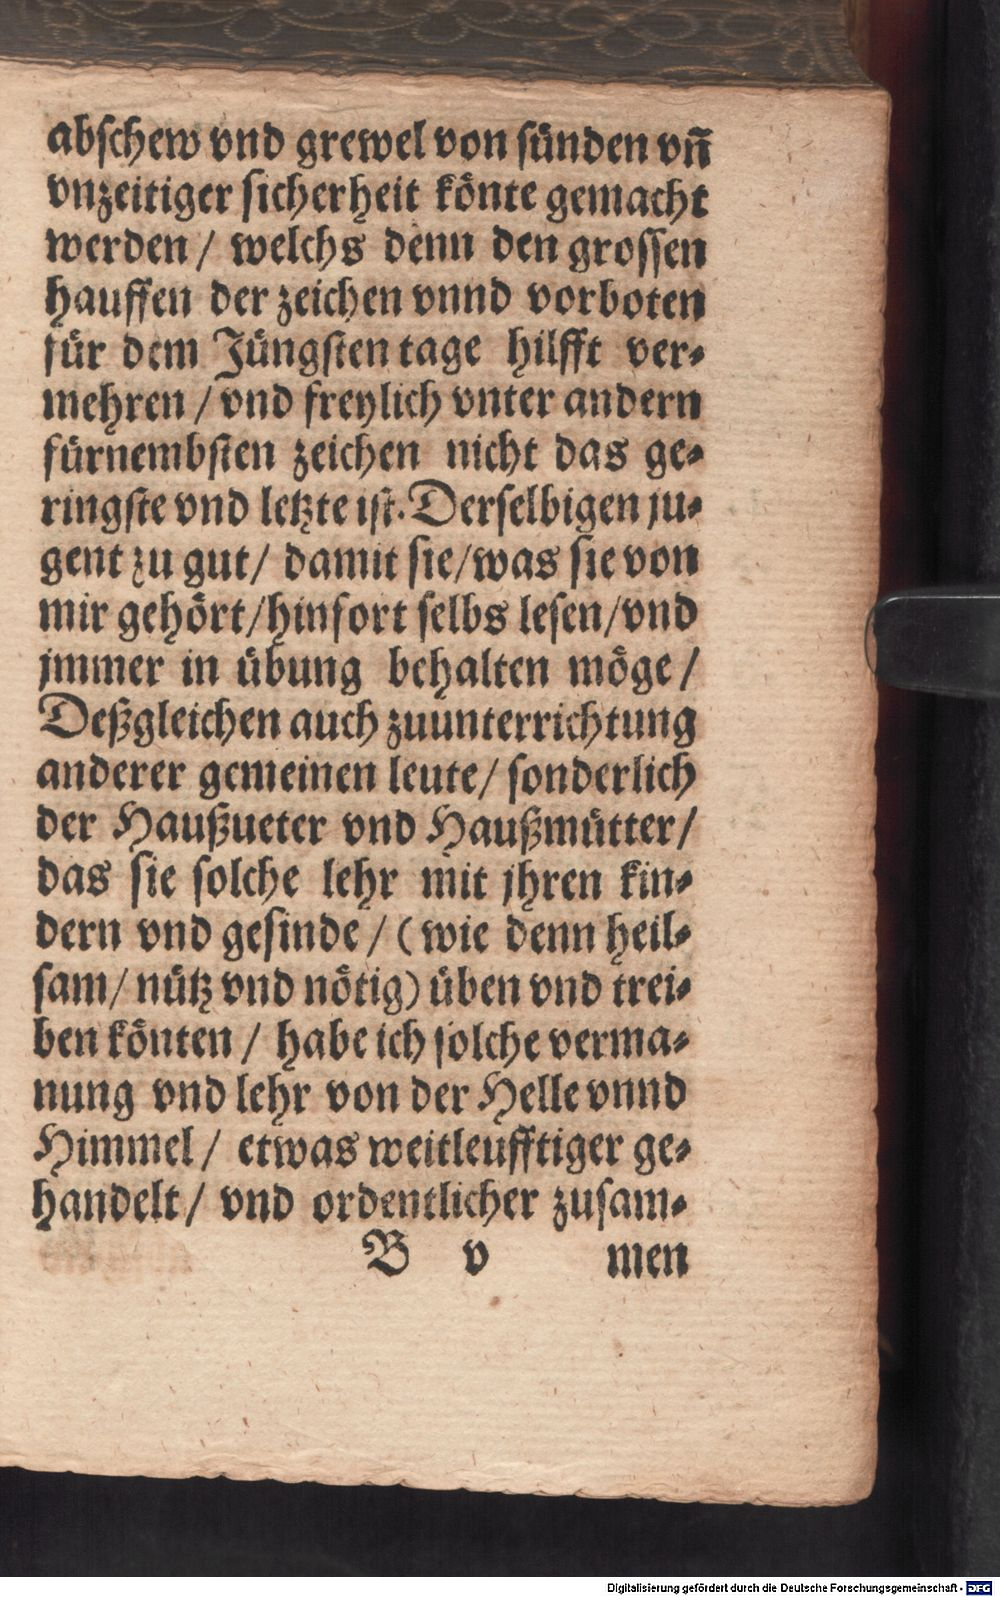 abschew vnd grewel von sünden vñ
vnzeitiger sicherheit könte gemacht
werden / welchs denn den grossen
hauffen der zeichen vnnd vorboten
für dem Jüngsten tage hilfft ver-
mehren / vnd freylich vnter andern
fürnembsten zeichen nicht das ge-
ringste vnd letzte ist. Derselbigen ju-
gent zu gut / damit sie / was sie von
mir gehört / hinfort selbs lesen / vnd
jmmer in übung behalten möge /
Deßgleichen auch zuunterrichtung
anderer gemeinen leute / sonderlich
der Haußueter vnd Haußmütter /
das sie solche lehr mit jhren kin-
dern vnd gesinde / (wie denn heil-
sam / nütz vnd nötig) üben vnd trei-
ben könten / habe ich solche verma-
nung vnd lehr von der Helle vnnd
Himmel / etwas weitleufftiger ge-
handelt / vnd ordentlicher zusam-
B v men
Digitalisierung gefördert durch die Deutsche Forschungsgemeinschaft - DFG